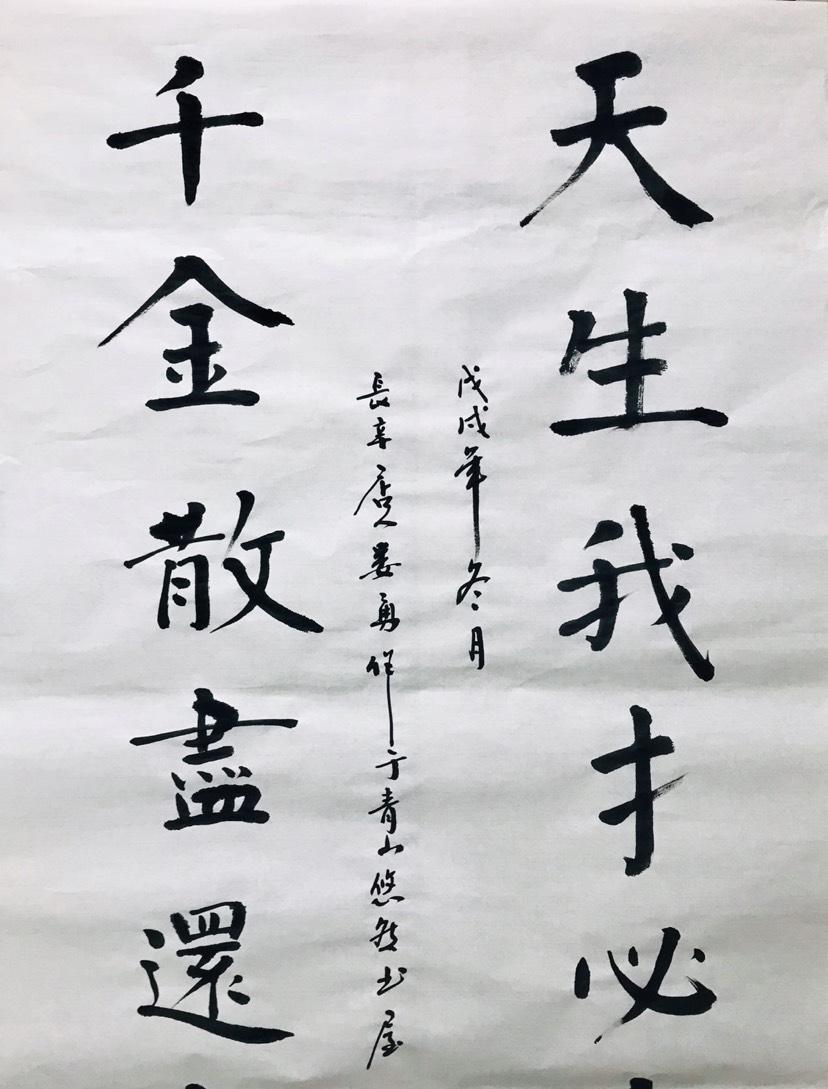 天生我才必
戊戌年冬月
長享 婁勇作于青山悠然书屋
千金散盡還